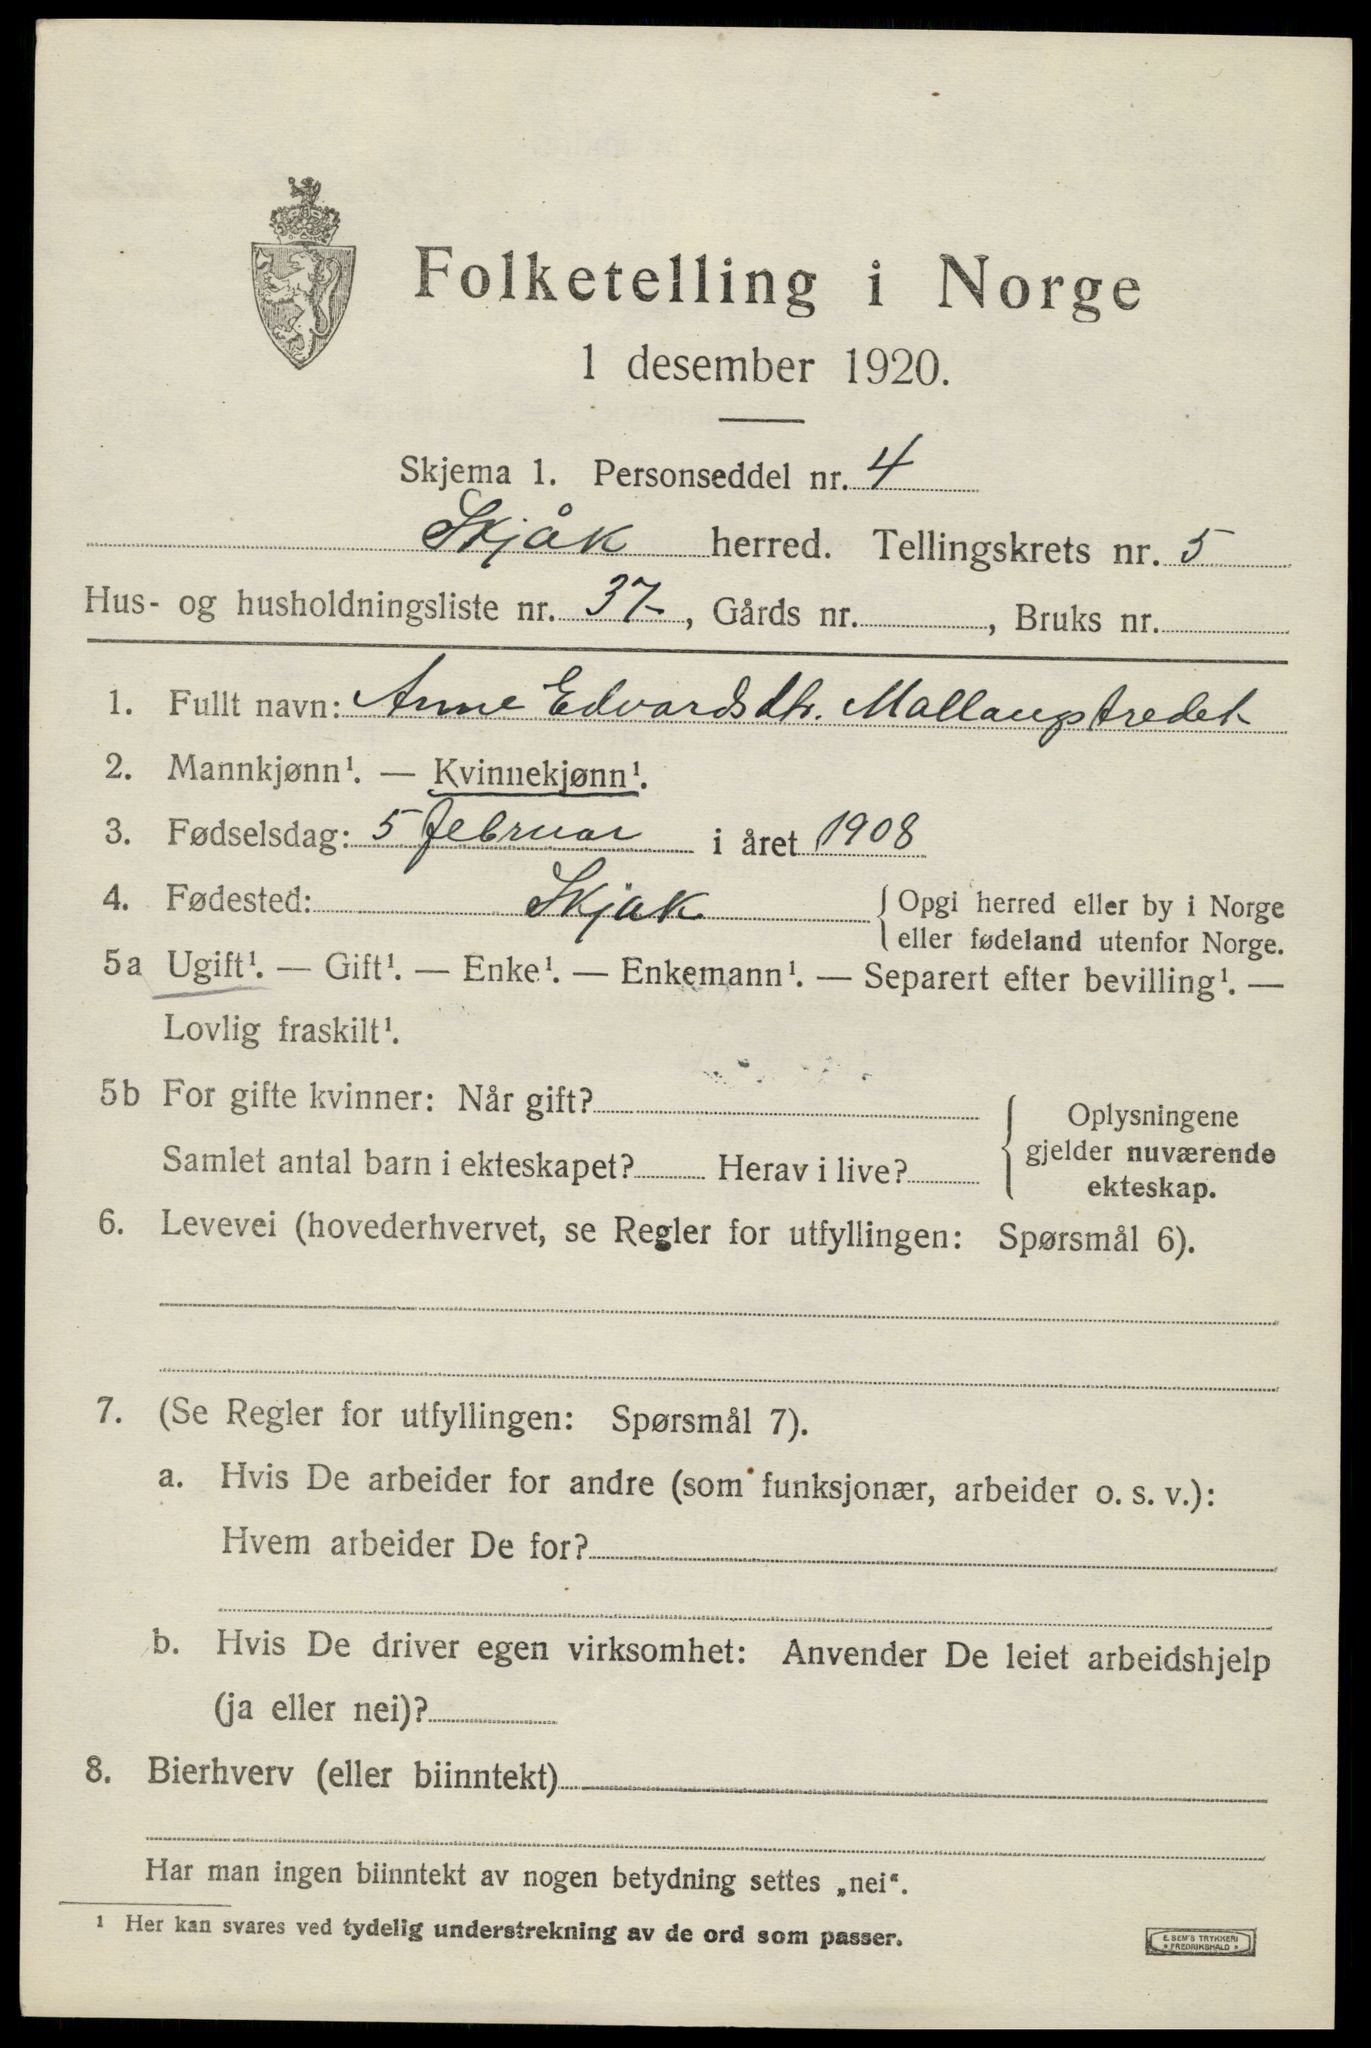 Folketelling i Norge
1 desember 1920.
Skjema 1. Personseddel nr. 4
Skjåk herred. Tellingskrets nr. 5
Hus- og husholdningsliste nr. 37-, Gårds nr. , Bruks nr.
1. Fullt navn: Anne Edvardsdtr. Mallaugstredet
2. Mannkjønn¹. — Kvinnekjønn¹.
3. Fødselsdag: 5 februar i året 1908
4. Fødested: Skjak { Opgi herred eller by i Norge
eller fødeland utenfor Norge.
5a Ugift¹. — Gift¹. — Enke¹. — Enkemann¹. — Separert efter bevilling¹. —
Lovlig fraskilt¹.
5b For gifte kvinner: Når gift?
Samlet antal barn i ekteskapet? Herav i live?
{ Oplysningene
gjelder nuværende
ekteskap.
6. Levevei (hovederhvervet, se Regler for utfyllingen: Spørsmål 6).
7. (Se Regler for utfyllingen: Spørsmål 7).
a. Hvis De arbeider for andre (som funksjonær, arbeider o. s. v.):
Hvem arbeider De for?
b. Hvis De driver egen virksomhet: Anvender De leiet arbeidshjelp
(ja eller nei)?
8. Bierhverv (eller biinntekt)
Har man ingen biinntekt av nogen betydning settes „nei“.
¹ Her kan svares ved tydelig understrekning av de ord som passer.
E. SEM'S TRYKKERI
* FREDRIKSHALD *